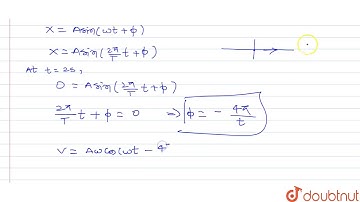 x = Asin(ωt + φ)
x = Asin(2π/T t + φ)
At t = 2s,
0 = Asin(2π/T t + φ)
2π/T t + φ = 0 ⇒ φ = - 4π/t
V = Aωcos(ωt - 4
doubtnut